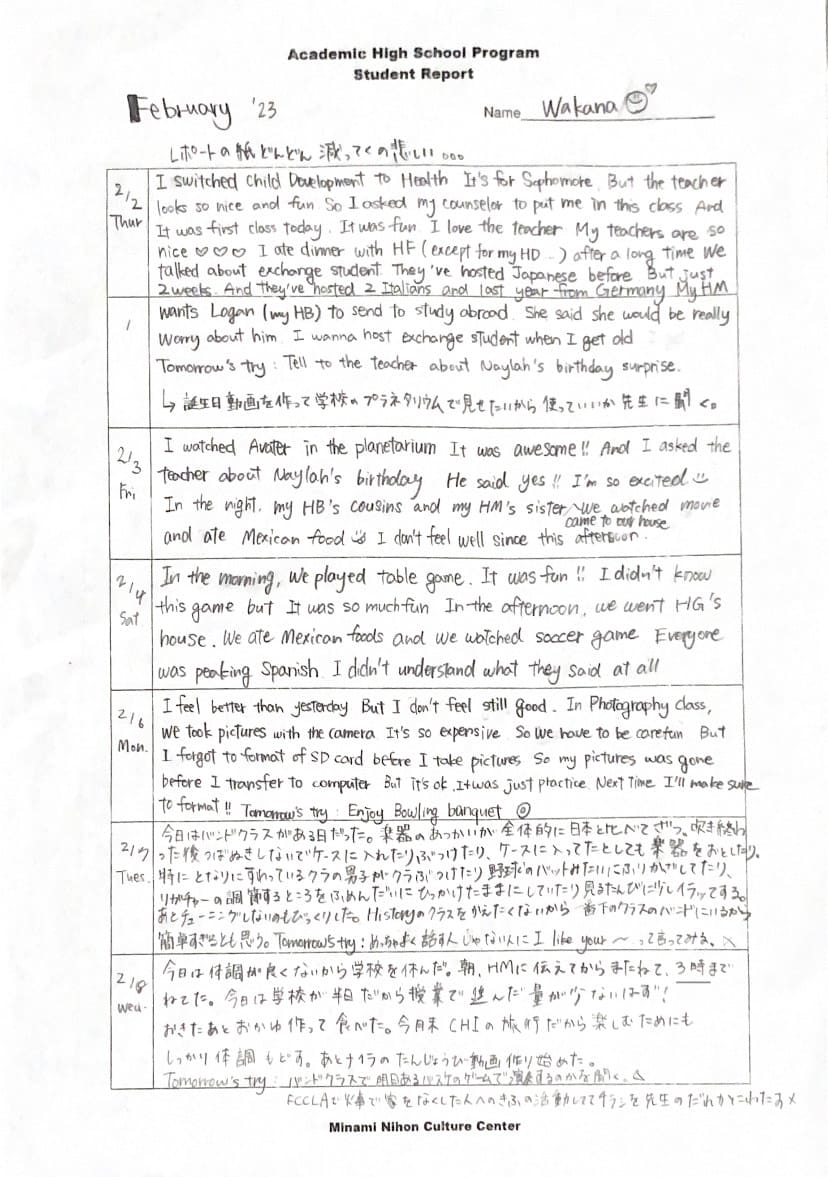 Academic High School Program
Student Report
February '23
Name Wakana
レポートの紙どんどん減ってくの悲しい。。。
2/2
Thur
I switched Child Development to Health It's for Sophomore. But the teacher
looks so nice and fun. So I asked my counselor to put me in this class And
It was first class today. It was fun. I love the teacher My teachers are so
nice ♡♡♡ I ate dinner with HF (except for my HD ..) after a long time We
talked about exchange student. They've hosted Japanese before But just
2weeks. And they've hosted 2 Italians and last year from Germany My HM
wants Logan (my HB) to send to study abroad. She said she would be really
worry about him. I wanna host exchange student when I get old
Tomorrow's try : Tell to the teacher about Naylah's birthday surprise.
↳ 誕生日動画を作って学校のプラネタリウムで見せたいから使っていいか先生に聞く。
2/3
Fri
I watched Avater in the planetarium It was awesome!! And I asked the
teacher about Naylah's birthday He said yes!! I'm so excited
In the night, my HB's cousins and my HM's sister We watched movie
came to our house
and ate Mexican food I don't feel well since this afternoon.
2/4
Sat
In the morning, We played table game. It was fun!! I didn't know
this game but It was so much fun In the afternoon, we went HG's
house. We ate Mexican foods and we watched soccer game Everyone
was peaking Spanish. I didn't understand what they said at all
2/6
Mon.
I feel better than yesterday But I don't feel still good. In Photography class,
We took pictures with the camera It's so expensive. So we have to be carefun But
I forgot to format of SD card before I take pictures So my pictures was gone
before I transfer to computer But it's ok. It was just practice. Next time I'll make sure
to format!! Tomorrow's try : Enjoy Bowling banquet ◎
2/7
Tues.
今日はバンドクラスがある日だった。楽器のあつかいが全体的に日本と比べてざつ。吹き終わ
った後つばぬきしないでケースに入れたりぶつけたり、ケースに入ってたとしても楽器をおとしたり、
特にとなりにすわっているクラの男子がクラぶつけたり野球のバットみたいにふりかざしてたり、
リガチャーの調節するところをふめんだいにひっかけたままにしていたり見るたんびに少しイラッてする。
あとチューニングしないのもびっくりした。Historyのクラスをかえたくないから一番下のクラスのバンドにいるから
簡単すぎるとも思う。Tomorrow's try : めっちゃよく話す人じゃない人に I like your ～ って言ってみる。
2/8
Wed.
今日は体調が良くないから学校を休んだ。朝、HMに伝えてからまたねて、3時まで
ねてた。今日は学校が半日だから授業で進んだ量が少ないはず!
おきたあとおかゆ作って食べた。今月末CHIの旅行だから楽しむためにも
しっかり体調もどす。あとナイラのたんじょうび動画作り始めた。
Tomorrow's try : バンドクラスで明日あるバスケのゲームで演奏するのかを聞く。△
FCCLAで火事で家をなくした人へのきふの活動しててチラシを先生のだれかに
Minami Nihon Culture Center